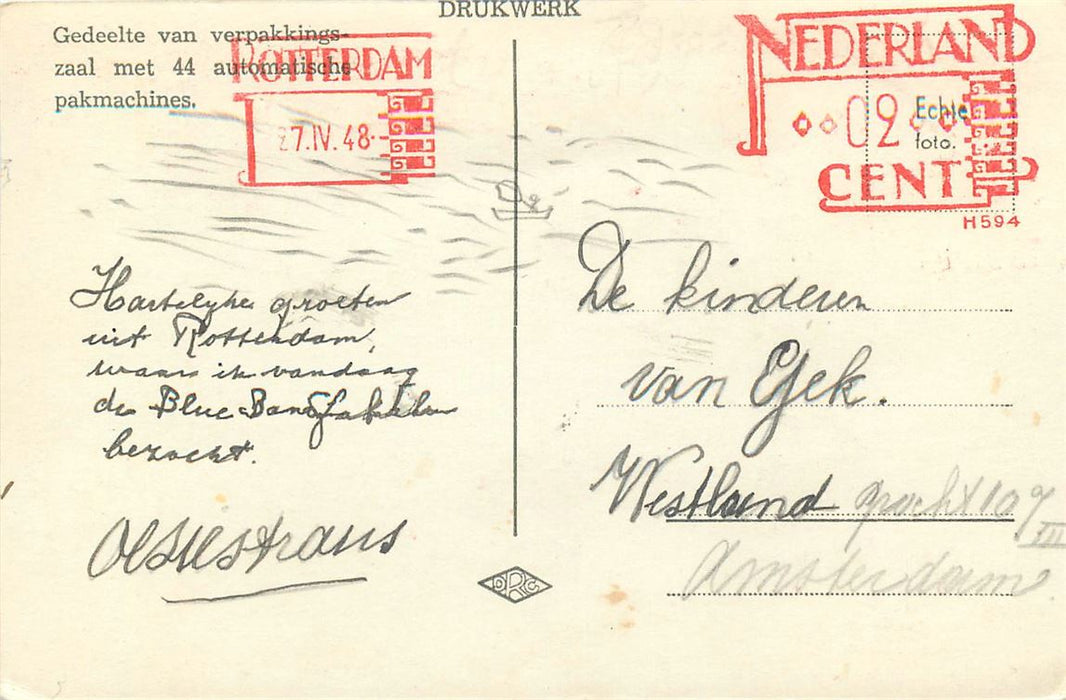 DRUKWERK
Gedeelte van verpakkings-
zaal met 44 automatische
pakmachines.
ROTTERDAM
27.IV.48
NEDERLAND
02
CENT
H594
Echte
foto.
Hartelijke groeten
uit Rotterdam,
waar ik vandaag
de Blue Band
bezocht.
De kinderen
van Eyck.
Westland gracht 109 III
Amsterdam